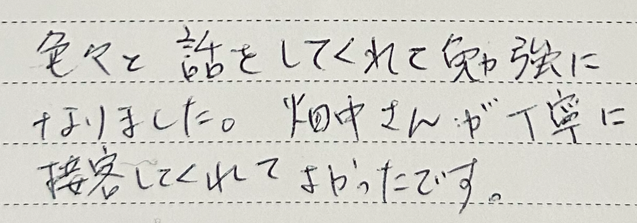 色々と話をしてくれて勉強に
なりました。畑中さんが丁寧に
接客してくれてよかったです。